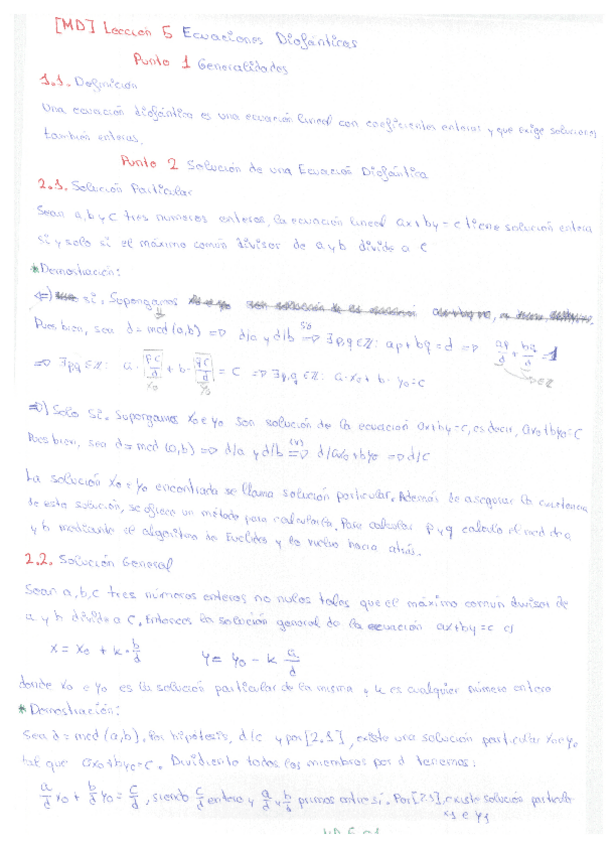 [MD] Lección 5 Ecuaciones Diofánticas
Punto 1 Generalidades
1.1. Definición
Una ecuación diofántica es una ecuación lineal con coeficientes enteros y que exige soluciones
también enteras.
Punto 2 Solución de una Ecuación Diofántica
2.1. Solución Particular
Sean a, b y c tres números enteros, la ecuación lineal ax+by=c tiene solución entera
si y solo si el máximo común divisor de a y b divide a c
*Demostración:
⇐) si. Supongamos
Pues bien, sea d = mcd (a,b) ⇒ d/a y d/b ⇒ ∃p,q∈ℤ: ap+bq=d ⇒ ap/d + bq/d = 1
⇒ ∃p,q∈ℤ: a·pc/d + b·qc/d = c ⇒ ∃p,q∈ℤ: a·x0 + b·y0=c
⇒) Solo si. Supongamos x0 e y0 son solución de la ecuación ax+by=c, es decir, ax0+by0=c
Pues bien, sea d=mcd (a,b) ⇒ d/a y d/b ⇒ d/ax0+by0 ⇒ d/c
La solución x0 e y0 encontrada se llama solución particular. Además de asegurar la existencia
de esta solución, se ofrece un método para calcularla. Para calcular p y q calculo el mcd de a
y b mediante el algoritmo de Euclides y lo vuelvo hacia atrás.
2.2. Solución General
Sean a, b, c tres números enteros no nulos tales que el máximo común divisor de
a y b divide a c. Entonces la solución general de la ecuación ax+by=c es
x = x0 + k·b/d y = y0 - k a/d
donde x0 e y0 es la solución particular de la misma y k es cualquier número entero
*Demostración:
Sea d = mcd (a,b). Por hipótesis, d/c y por [2.1], existe una solución particular x0 e y0
tal que ax0+by0=c. Dividiendo todos los miembros por d tenemos:
a/d x0 + b/d y0 = c/d, siendo c/d entero y a/d y b/d primos entre sí. Por [2.1], existe solución particular
x1 e y1